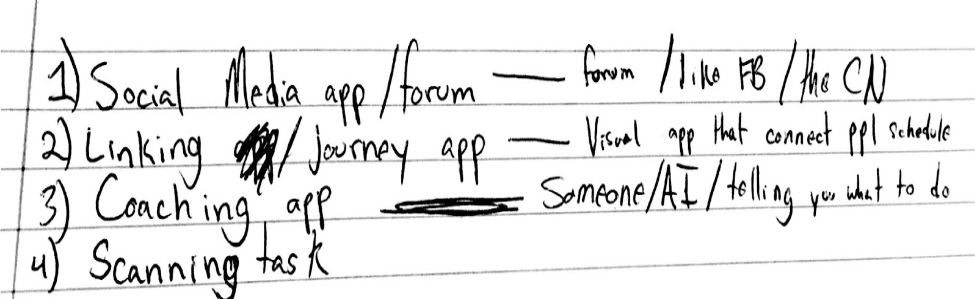 1) Social Media app / forum — forum / like FB / the CN
2) Linking / journey app — Visual app that connect ppl schedule
3) Coaching app — Someone/AI / telling you what to do
4) Scanning task